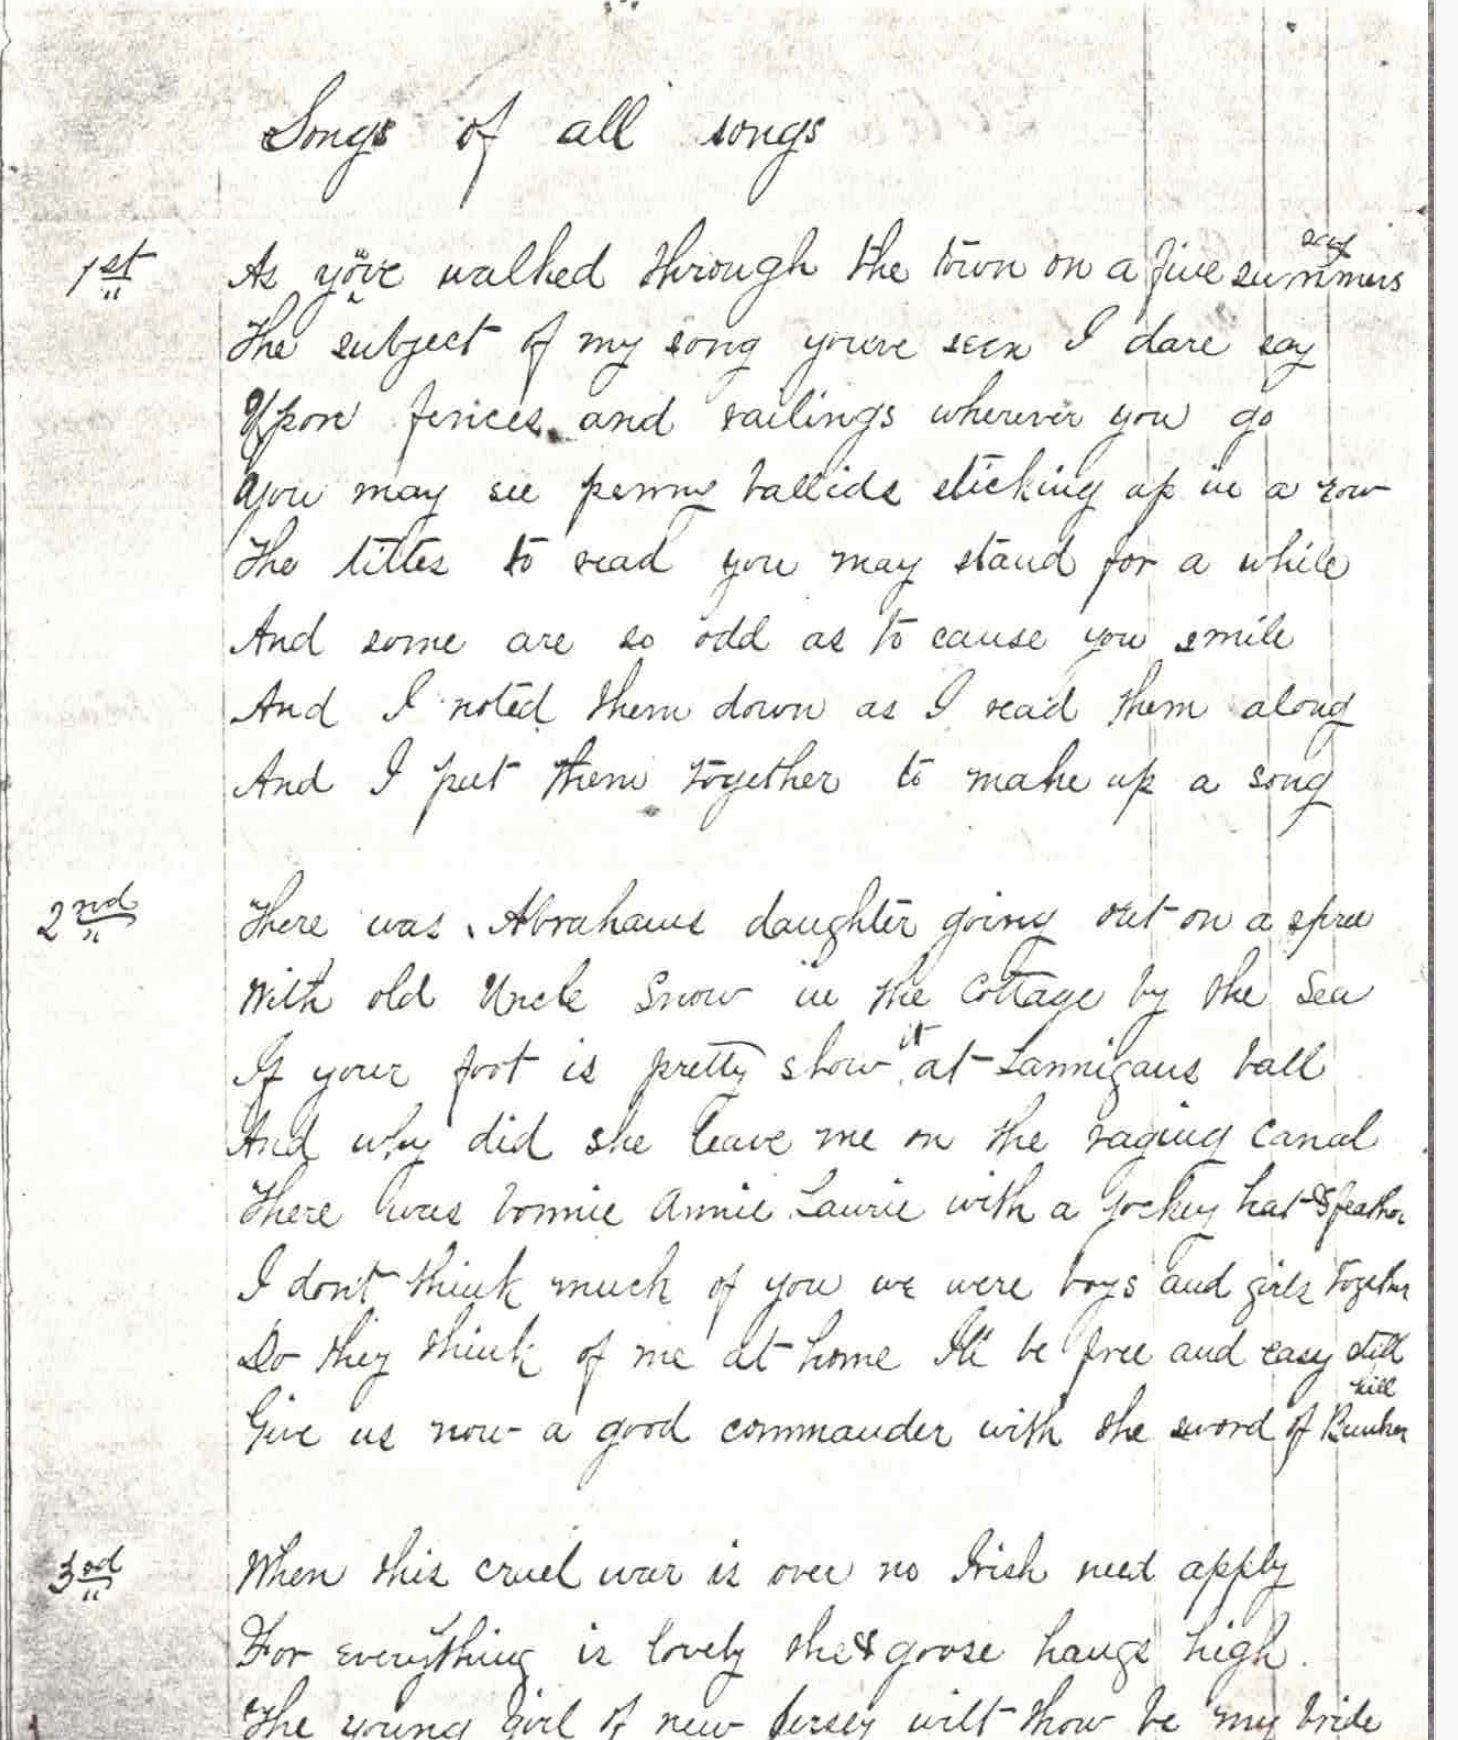 Songs of all songs
1st As you've walked through the town on a fine summers day
The subject of my song youve seen I dare say
Upon fences and railings wherever you go
You may see penny ballids sticking up in a row
The titles to read you may stand for a while
And some are so odd as to cause you smile
And I noted them down as I read them along
And I put them together to make up a song
2nd There was Abrahams daughter going out on a spree
With old Uncle Snow in the Cottage by the Sea
If your foot is pretty show it at Lannigans ball
And why did she leave me on the raging Canal
There was bonnie Annie Laurie with a jockey hat & feather
I don't think much of you we were boys and girls together
Do they think of me at home I'll be free and easy still
Give us now a good commander with the sword of Bunker hill
3rd When this cruel war is over no Irish need apply
For everything is lovely the goose hangs high.
The young girl of new Jersey wilt thow be my bride